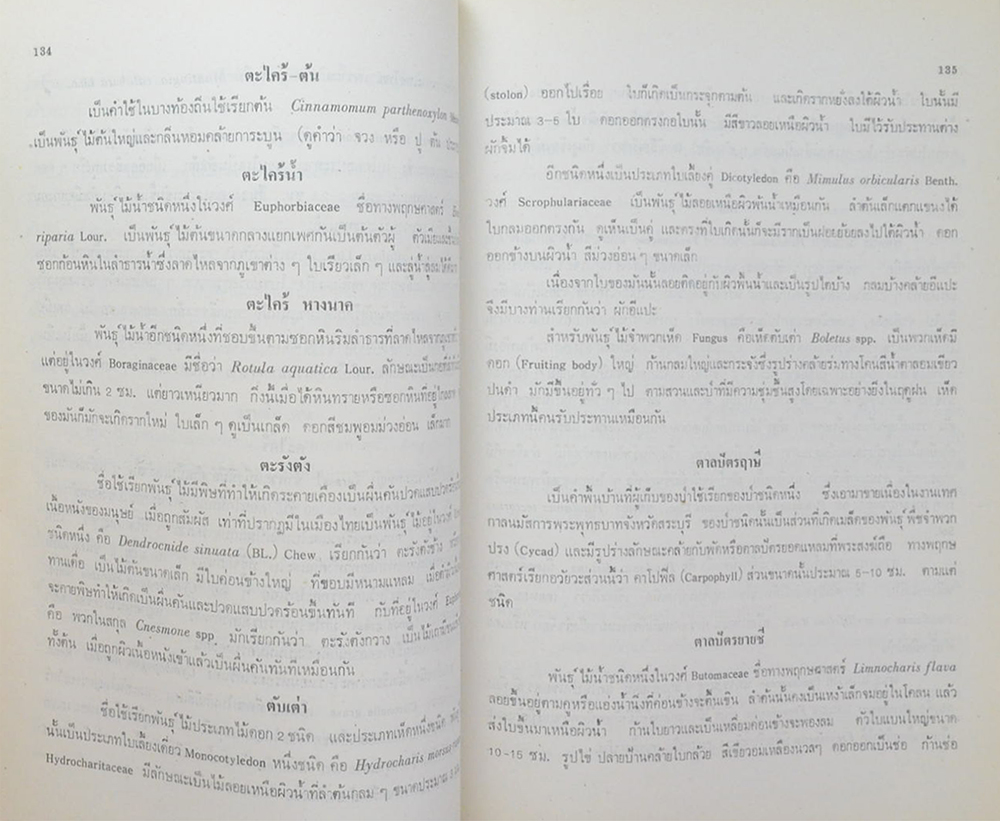 134
ตะไคร้-ต้น
เป็นคำใช้ในบางท้องถิ่นใช้เรียกต้น Cinnamomum parthenoxylon
เป็นพันธุ์ไม้ต้นใหญ่และกลิ่นหอมคล้ายการะบูน (ดูคำว่า จวง หรือ ปู ต้น
ตะไคร้น้ำ
พันธุ์ไม้น้ำชนิดหนึ่งในวงศ์ Euphorbiaceae ชื่อทางพฤกษศาสตร์
riparia Lour. เป็นพันธุ์ไม้ต้นขนาดกลางแยกเพศกันเป็นต้นตัวผู้ ตัวเมีย
ซอกก้อนหินในลำธารน้ำซึ่งลาดไหลจากภูเขาต่าง ๆ ใบเรียวเล็ก ๆ และลู่น้ำ
ตะไคร้ หางนาค
พันธุ์ไม้น้ำอีกชนิดหนึ่งที่ชอบขึ้นตามซอกหินริมลำธารที่ลาดไหลจากภูเขา
แต่อยู่ในวงศ์ Boraginaceae มีชื่อว่า Rotula aquatica Lour. ลักษณะเป็นกอ
ขนาดไม่เกิน 2 ซม. แต่ยาวเหนียวมาก กิ่งนี้เมื่อได้หินทรายหรือซอกหินที่อยู่ใกล้
ของมันก็มักจะเกิดรากใหม่ ใบเล็ก ๆ ดูเป็นเกล็ด ดอกสีชมพูอมม่วงอ่อน เล็กมาก
ตะรังตัง
ชื่อใช้เรียกพันธุ์ไม้มีพิษที่ทำให้เกิดระคายเคืองเป็นผื่นคันปวดแสบปวดร้อน
เนื้อหนังของมนุษย์ เมื่อถูกสัมผัส เท่าที่ปรากฏมีในเมืองไทยเป็นพันธุ์ไม้อยู่ในวงศ์
ชนิดหนึ่ง คือ Dendrocnide sinuata (BL.) Chew เรียกกันว่า ตะรังตังช้าง
ทานเคือ เป็นไม้ต้นขนาดเล็ก มีใบค่อนข้างใหญ่ ที่ขอบมีหนามแหลม เมื่อ
จะคายพิษทำให้เกิดเป็นผื่นคันและปวดแสบปวดร้อนขึ้นทันที กับที่อยู่ในวงศ์
คือ พวกในสกุล Cnesmone spp. มักเรียกกันว่า ตะรังตังกวาง เป็นไม้เถา
ทั้งต้น เมื่อถูกผิวเนื้อหนังเข้าแล้วเป็นผื่นคันทันทีเหมือนกัน
ตับเต่า
ชื่อใช้เรียกพันธุ์ไม้ประเภทไม้ดอก 2 ชนิด และประเภทเห็ดหนึ่งชนิด
นั้นเป็นประเภทใบเลี้ยงเดี่ยว Monocotyledon หนึ่งชนิด คือ Hydrocharis
Hydrocharitaceae มีลักษณะเป็นไม้ลอยเหนือผิวน้ำที่ลำต้นกลม ๆ ขนาดประมาณ
135
(stolon) ออกไปเรื่อย ใบก็เกิดเป็นกระจุกตามต้น และเกิดรากหยั่งลงใต้ผิวน้ำ ใบนั้นมี
ประมาณ 3-5 ใบ ดอกออกตรงกอใบนั้น มีสีขาวลอยเหนือผิวน้ำ ใบมีไว้รับประทานต่าง
ผักจิ้มได้
อีกชนิดหนึ่งเป็นประเภทใบเลี้ยงคู่ Dicotyledon คือ Mimulus orbicularis Benth.
วงศ์ Scrophulariaceae เป็นพันธุ์ไม้ลอยเหนือผิวพื้นน้ำเหมือนกัน ลำต้นเล็กแตกแขนงได้
ใบกลมออกตรงกัน ดูเห็นเป็นคู่ และตรงที่ใบเกิดนั้นก็จะมีรากเป็นฝอยย้อยลงไปใต้ผิวน้ำ ดอก
ออกข้างบนผิวน้ำ สีม่วงอ่อน ๆ ขนาดเล็ก
เนื่องจากใบของมันนั้นลอยติดอยู่กับผิวพื้นน้ำและเป็นรูปไตบ้าง กลมบ้างคล้ายอีแปะ
จึงมีบางท่านเรียกกันว่า ผักอีแปะ
สำหรับพันธุ์ไม้จำพวกเห็ด Fungus คือเห็ดตับเต่า Boletus spp. เป็นพวกเห็ดมี
ดอก (Fruiting body) ใหญ่ ก้านกลมใหญ่และกระจังซึ่งรูปร่างคล้ายร่มทางโคนสีน้ำตาลอมเขียว
ปนดำ มักมีขึ้นอยู่ทั่ว ๆ ไป ตามสวนและป่าที่มีความชุ่มชื้นสูงโดยเฉพาะอย่างยิ่งในฤดูฝน เห็ด
ประเภทนี้คนรับประทานเหมือนกัน
ตาลปัตรฤาษี
เป็นคำพื้นบ้านที่ผู้เก็บของป่าใช้เรียกของป่าชนิดหนึ่ง ซึ่งเอามาขายเนื่องในงานเทศ
กาลนมัสการพระพุทธบาทจังหวัดสระบุรี ของป่าชนิดนั้นเป็นส่วนที่เกิดเมล็ดของพันธุ์พืชจำพวก
ปรง (Cycad) และมีรูปร่างลักษณะคล้ายกับพัดหรือตาลปัตรยอดแหลมที่พระสงฆ์ถือ ทางพฤกษ
ศาสตร์เรียกอวัยวะส่วนนี้ว่า คาโปฟีล (Carpophyll) ส่วนขนาดนั้นประมาณ 5-10 ซม. ตามแต่
ชนิด
ตาลปัตรยายชี
พันธุ์ไม้น้ำชนิดหนึ่งในวงศ์ Butomaceae ชื่อทางพฤกษศาสตร์ Limnocharis flava
ลอยขึ้นอยู่ตามคูหรือแอ่งน้ำนิ่งที่ค่อนข้างจะตื้นเขิน ลำต้นนั้นคงเป็นเหง้าเล็กจมอยู่ในโคลน แล้ว
ส่งใบขึ้นมาเหนือผิวน้ำ ก้านใบยาวและเป็นเหลี่ยมค่อนข้างจะพองลม ตัวใบแบนใหญ่ขนาด
10-15 ซม. รูปไข่ ปลายป้านคล้ายใบกล้วย สีเขียวอมเหลืองนวลๆ ดอกออกเป็นช่อ ก้านช่อ